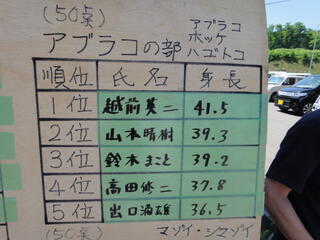 (50点)
アブラコ
ホッケ
ハゴトコ
アブラコの部
順位 氏名 身長
1位 越前英二 41.5
2位 山本晴樹 39.3
3位 鈴木まこと 39.2
4位 高田修二 37.8
5位 出口浦雄 36.5
(50点)
マゾイ・シマゾイ